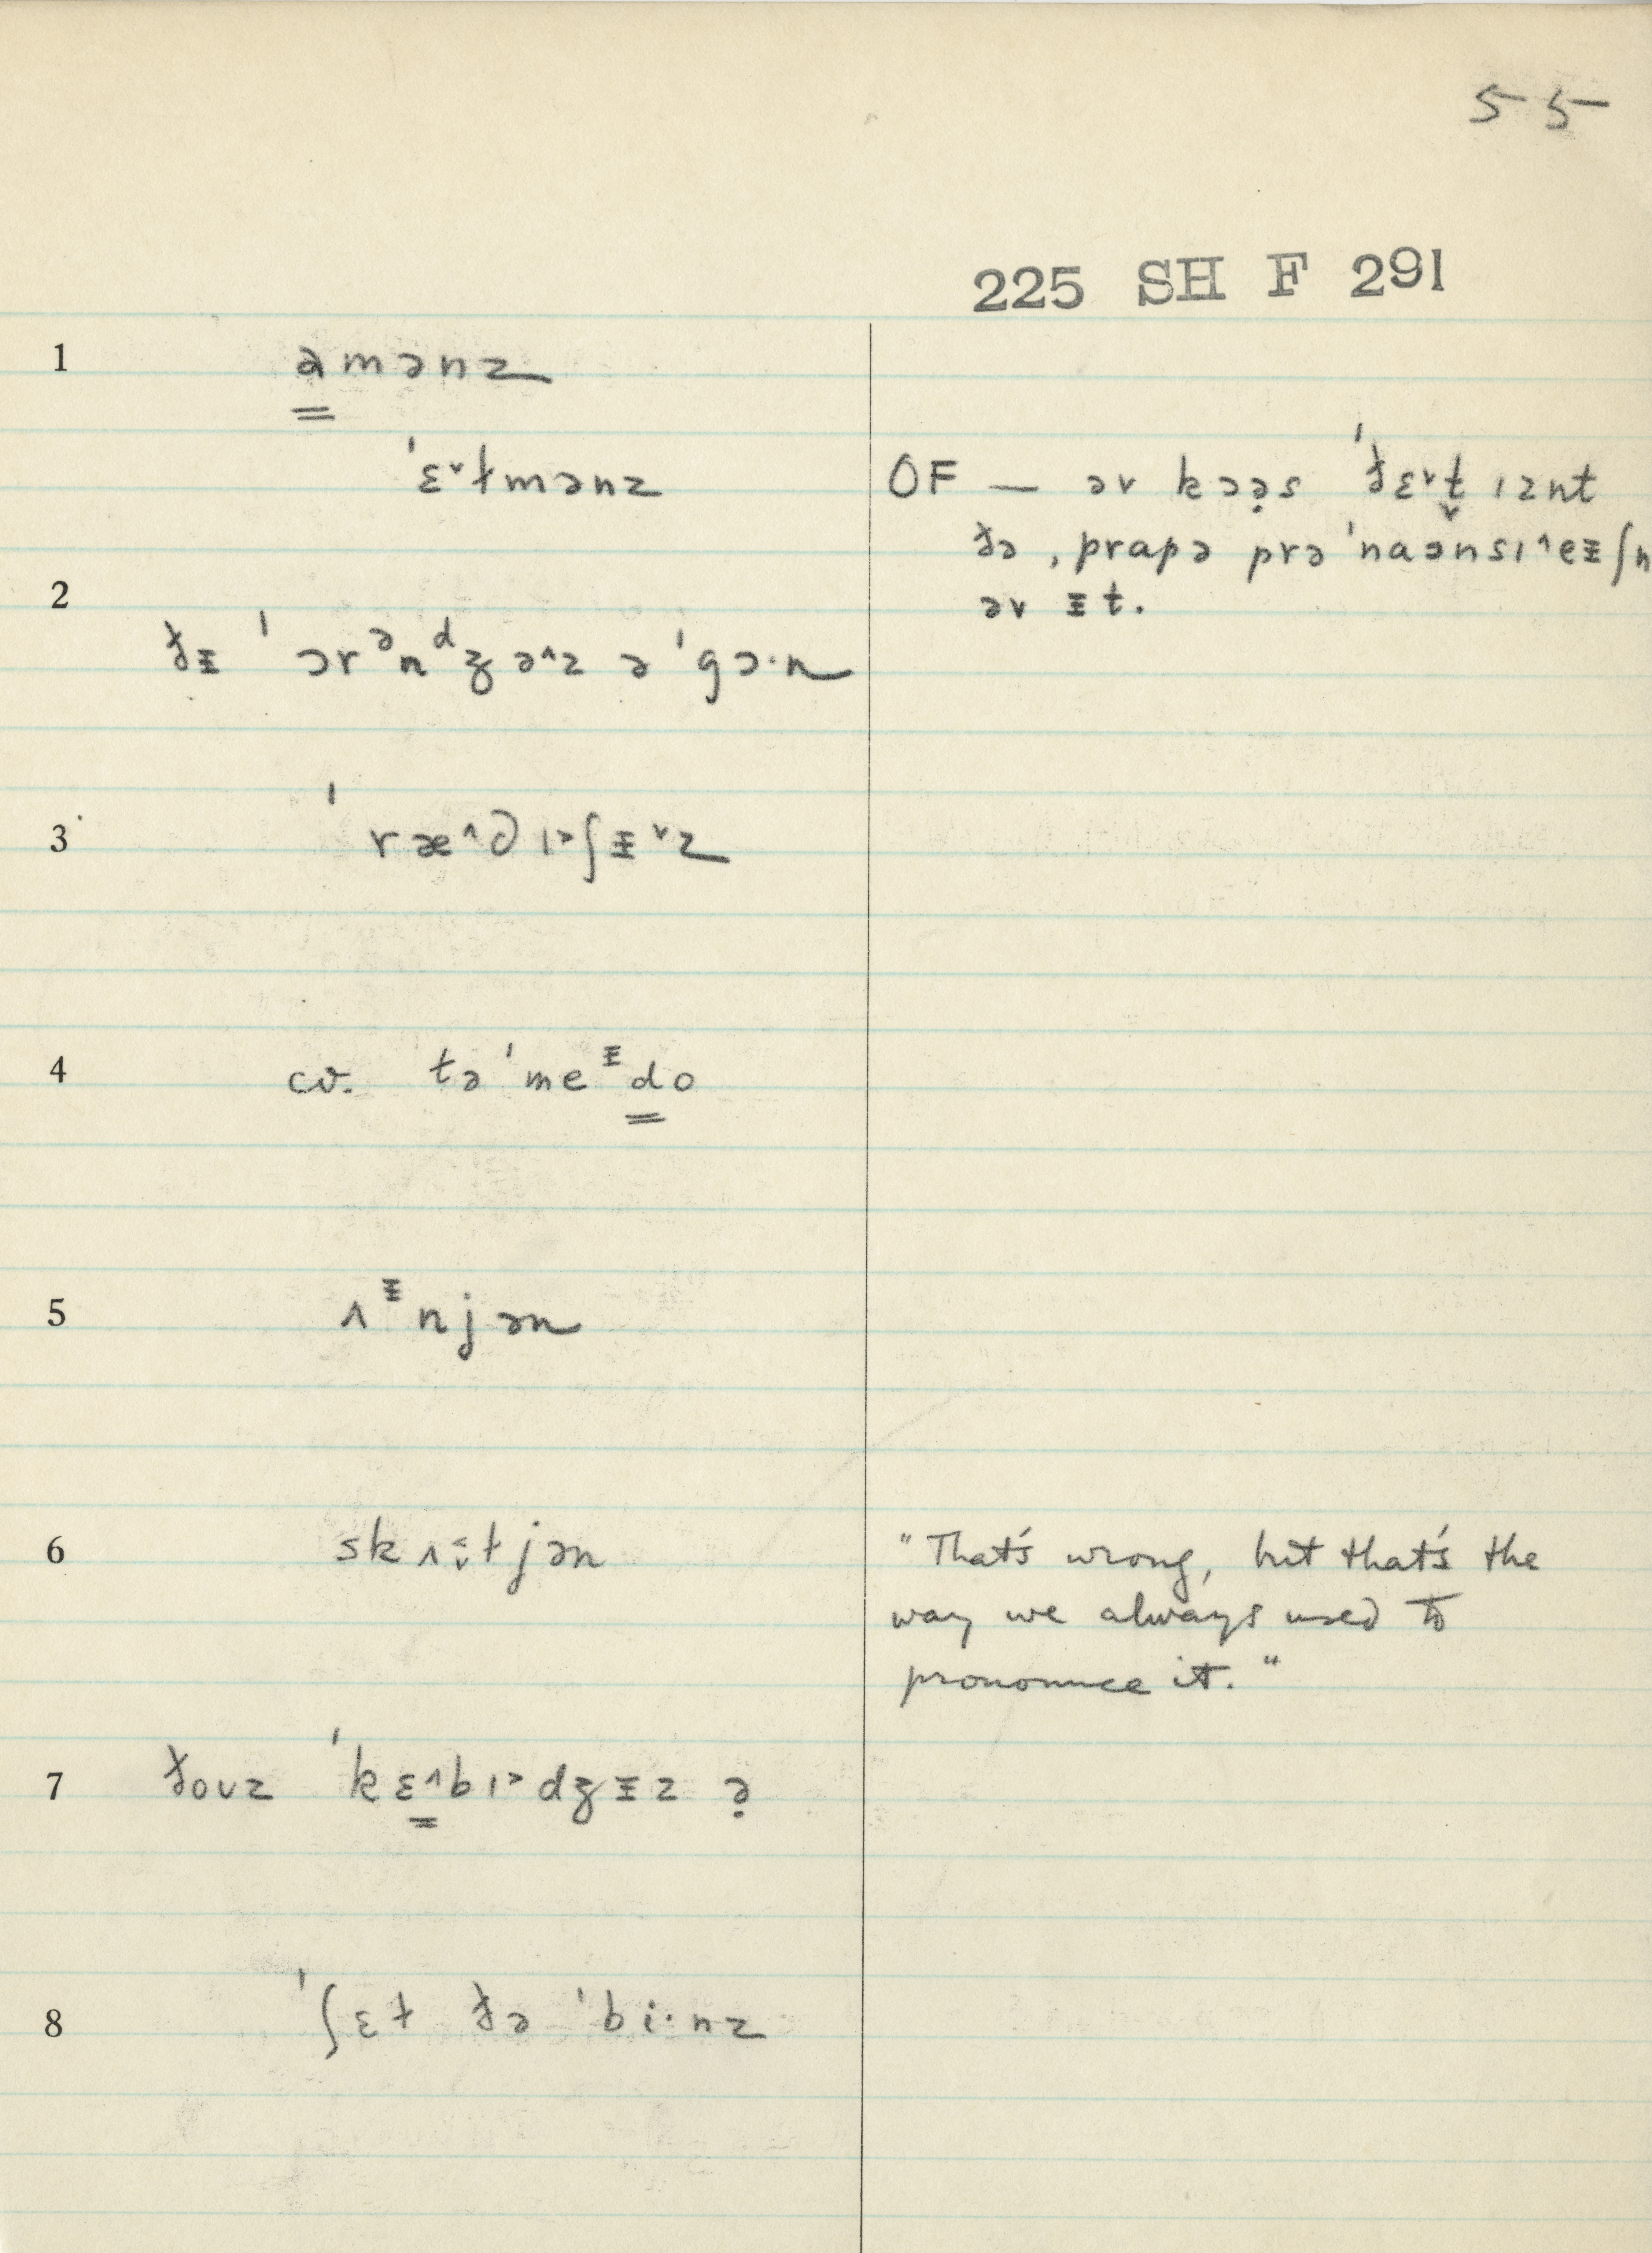 55
225 SH F 291
1 amənz
ˈɛ˅ɫmənz
OF — əv kɔə̣s ˈðɛ˅t̬ ɪznt
ðə ˌprapə prəˈnaənsɪ^eɪʃn
əv ɪt.
2
ðɨ ˈɔrᵊnᵈʒə^z ə ˈgɔ·n
3 ˈræ^dɪ˃ʃɨ˅z
4 cv. təˈmeᶤdo
5 ʌᶤnjən
6 skʌ ɫjən
"That's wrong, but that's the
way we always used to
pronounce it."
7 ðoʊz ˈkɛ^bɪ˃dʒɨz ə̣
8 ˈʃɛɫ ðə ˈbi·nz